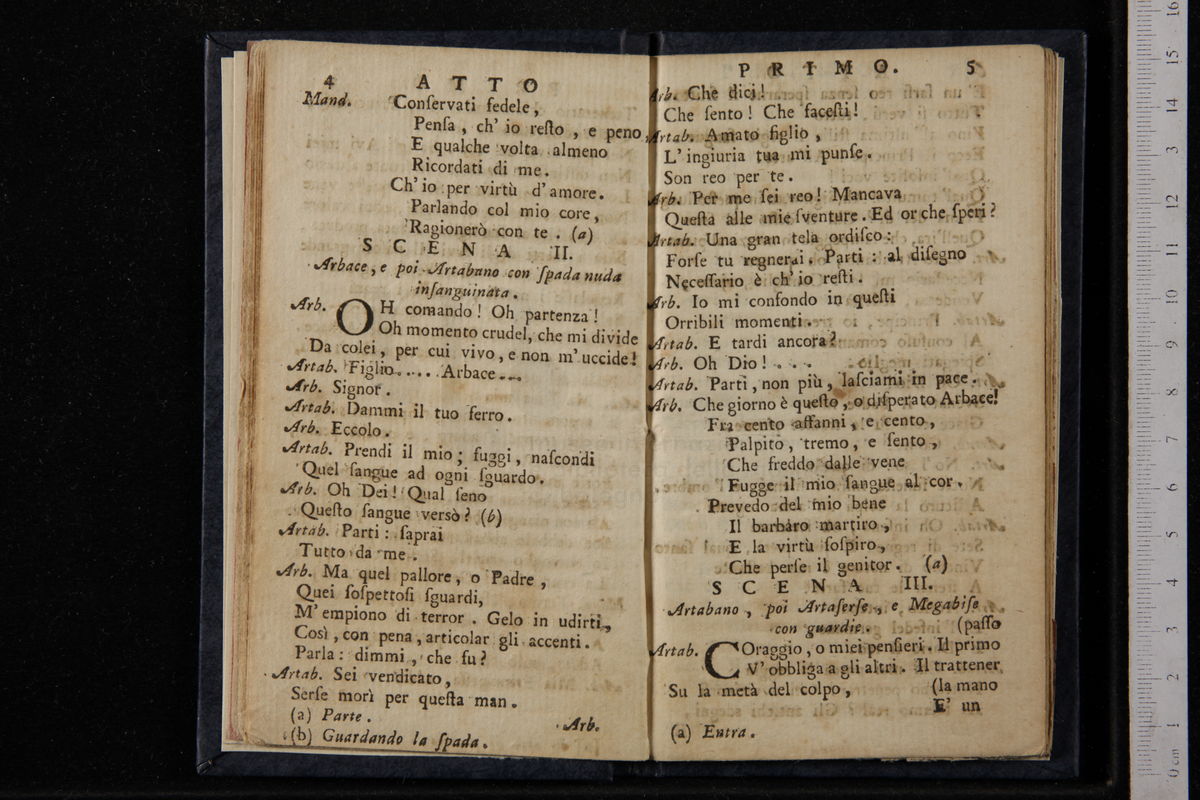 4 ATTO
Mand. Conſervati fedele,
Penſa, ch' io reſto, e peno,
E qualche volta almeno
Ricordati di me.
Ch' io per virtù d' amore.
Parlando col mio core,
Ragionerò con te. (a)
SCENA II.
Arbace, e poi Artabano con ſpada nuda
inſanguinata.
Arb. OH comando! Oh partenza!
Oh momento crudel, che mi divide
Da colei, per cui vivo, e non m' uccide!
Artab. Figlio..... Arbace...
Arb. Signor.
Artab. Dammi il tuo ferro.
Arb. Eccolo.
Artab. Prendi il mio; fuggi, naſcondi
Quel ſangue ad ogni ſguardo.
Arb. Oh Dei! Qual ſeno
Queſto ſangue versò? (b)
Artab. Parti: ſaprai
Tutto da me.
Arb. Ma quel pallore, o Padre,
Quei ſoſpettoſi ſguardi,
M' empiono di terror. Gelo in udirti,
Così, con pena, articolar gli accenti.
Parla: dimmi, che fu?
Artab. Sei vendicato,
Serſe morì per queſta man.
(a) Parte.
Arb.
(b) Guardando la ſpada.
PRIMO. 5
Arb. Che dici!
Che ſento! Che faceſti!
Artab. Amato figlio,
L' ingiuria tua mi punſe.
Son reo per te.
Arb. Per me ſei reo! Mancava
Queſta alle mie ſventure. Ed or che ſperi?
Artab. Una gran tela ordiſco:
Forſe tu regnerai. Parti: al diſegno
Neceſſario è ch' io reſti.
Arb. Io mi confondo in queſti
Orribili momenti.
Artab. E tardi ancora?
Arb. Oh Dio!...
Artab. Parti, non più, laſciami in pace.
Arb. Che giorno è queſto, o diſperato Arbace!
Fra cento affanni, e cento,
Palpito, tremo, e ſento,
Che freddo dalle vene
Fugge il mio ſangue al cor.
Prevedo del mio bene
Il barbaro martiro,
E la virtù ſoſpiro,
Che perſe il genitor. (a)
SCENA III.
Artabano, poi Artaſerſe, e Megabiſe
con guardie. (paſſo
Artab. COraggio, o miei penſieri. Il primo
V' obbliga a gli altri. Il trattener
Su la metà del colpo, (la mano
E' un
(a) Entra.